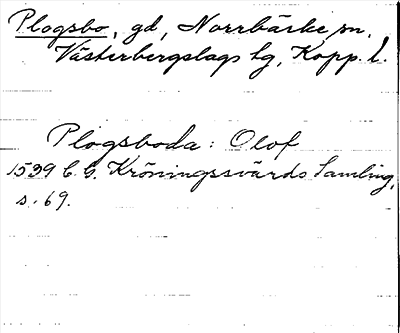 Plogsbo, gd, Norrbärke sn.
Västerbergslags hg, Kopp. l.
Plogsboda: Olof
1539 C. G. Kröningssvärds Samling,
s. 69.